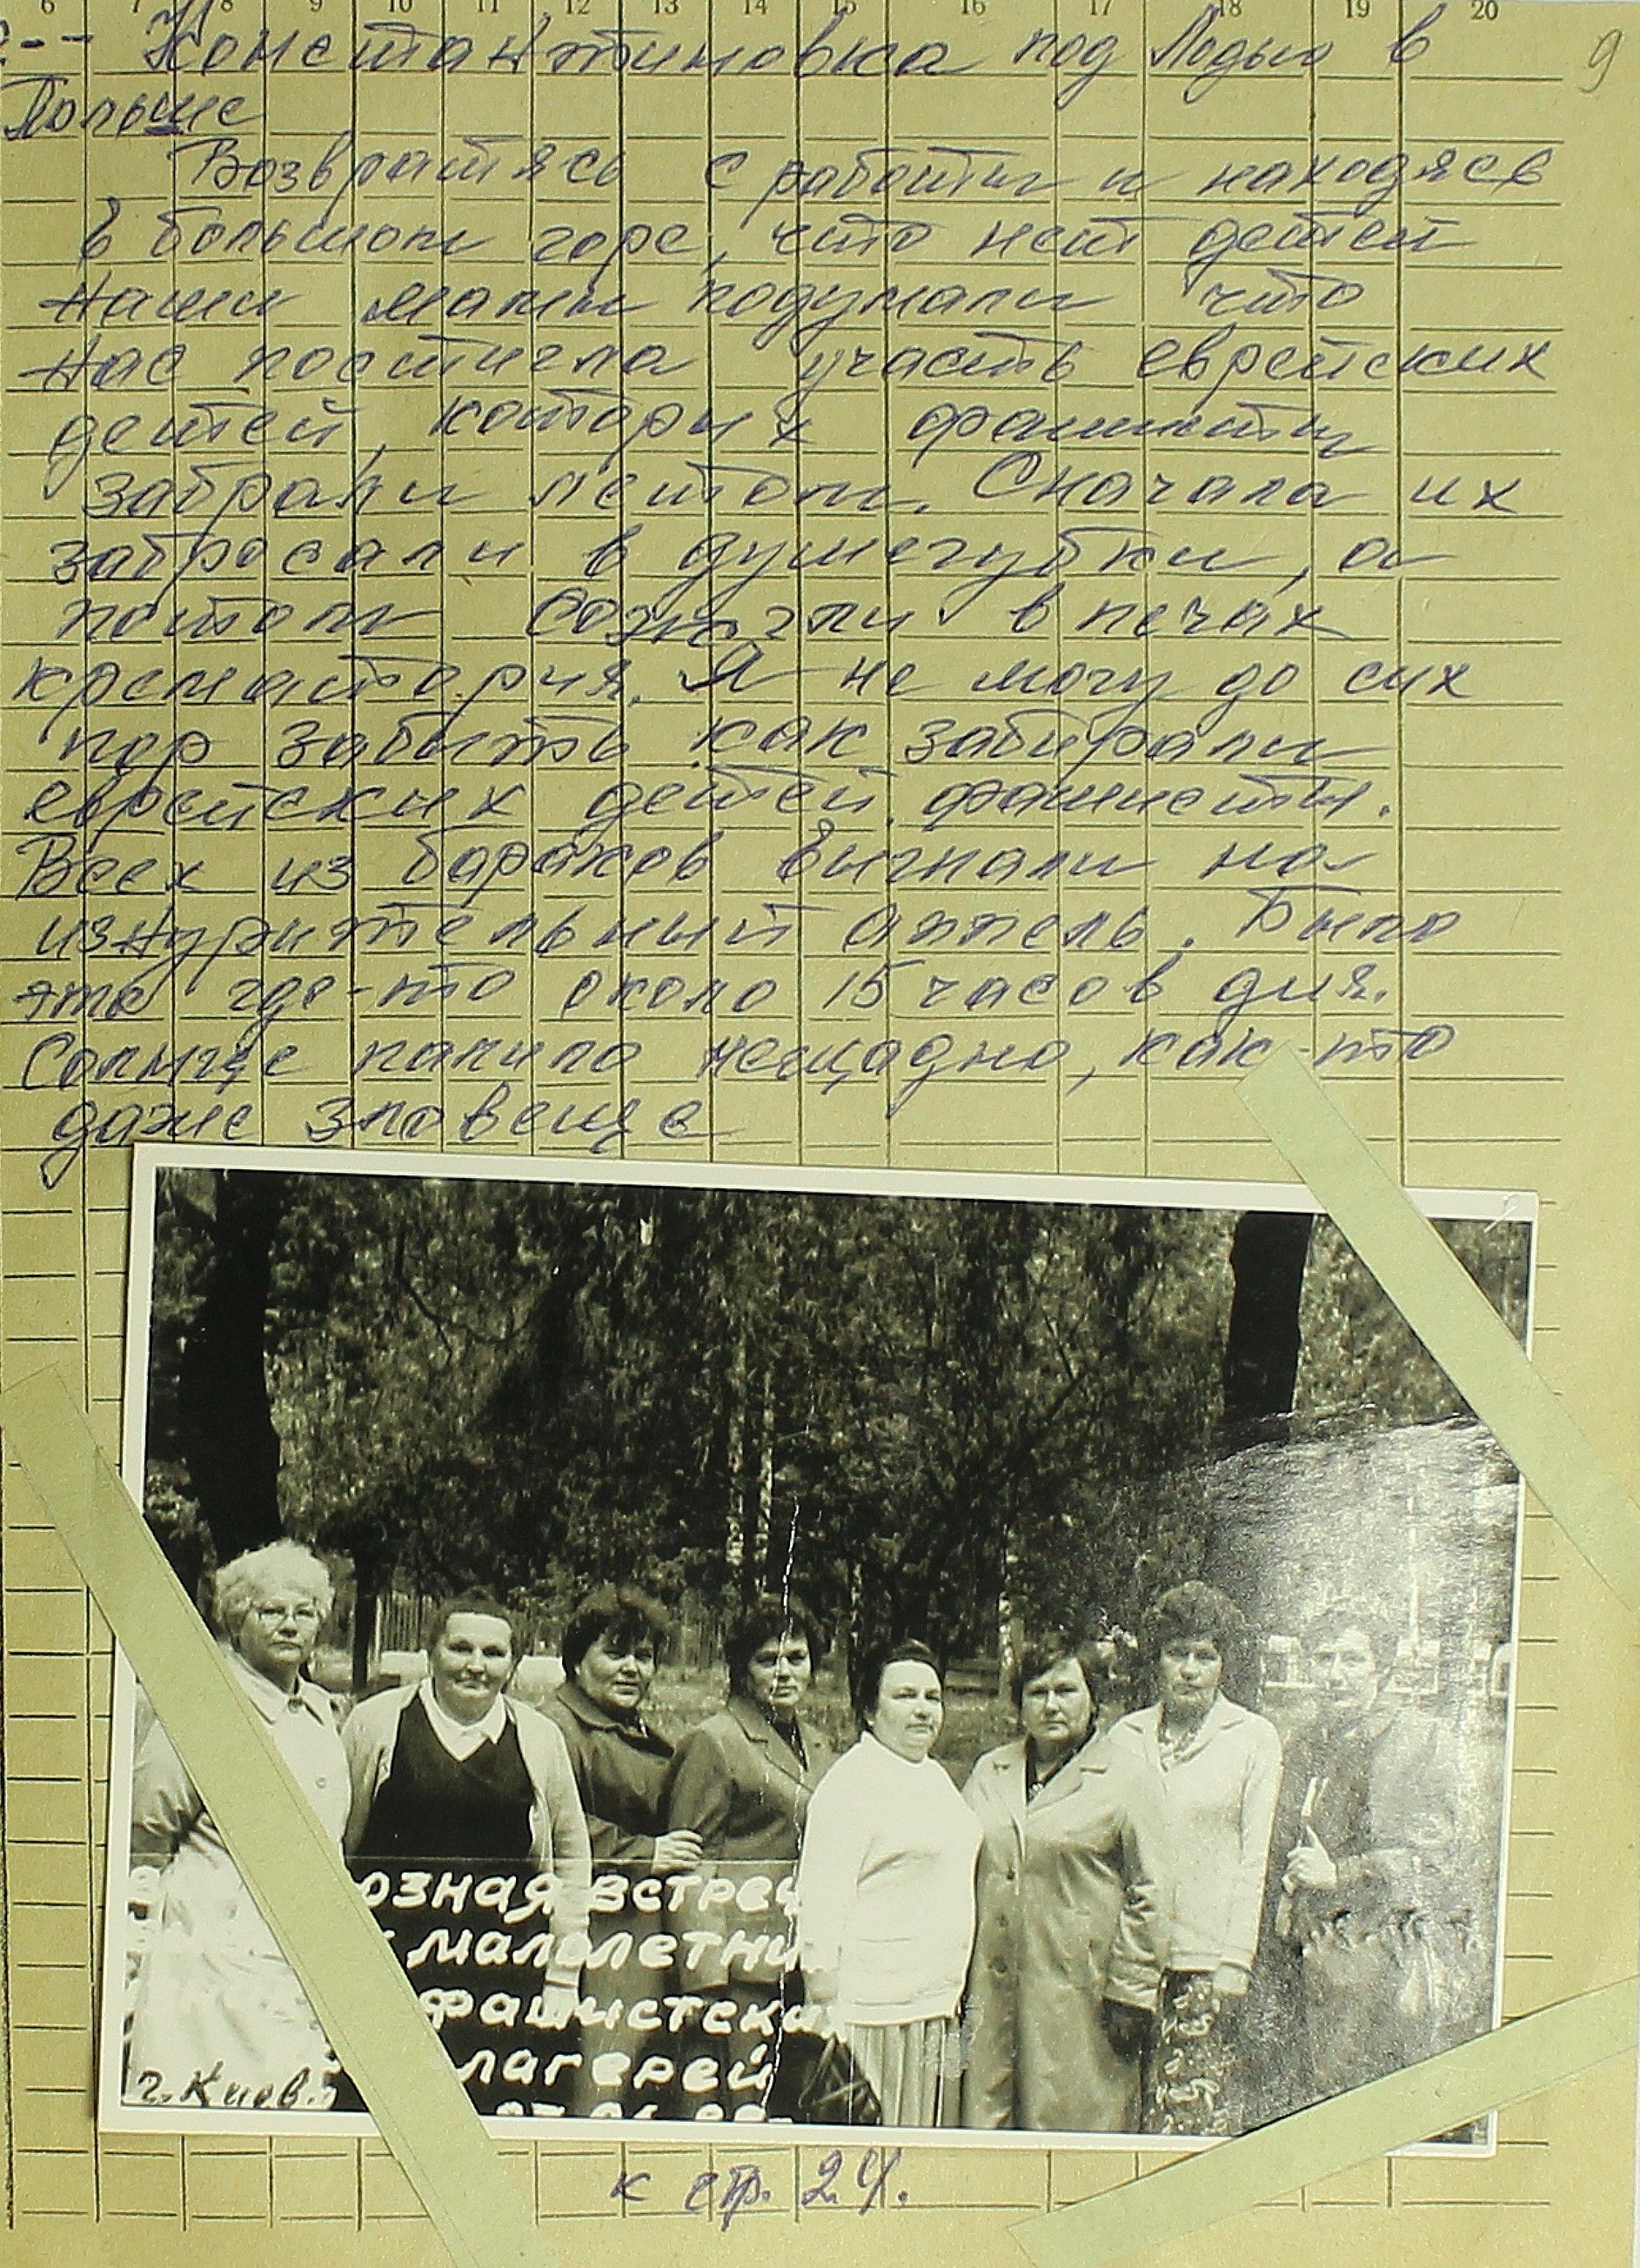 6 7 8 9 10 11 12 13 14 15 16 17 18 19 20
9
г-- Константиновка под Лодью в
Польше
Возвратясь с работы и находясь
в большом горе, что нет детей
наши мамы подумали что
нас постигла участь еврейских
детей, которых фашисты
забрали летом. Сначала их
забросали в душегубки, а
потом сожгли в печах
крематория. Я не могу до сих
пор забыть как забирали
еврейских детей фашисты.
Всех из бараков выгнали на
изнурительный аппель. Было
это где-то около 15 часов дня.
Солнце палило нещадно, как-то
даже зловеще
озная встреч
малолетни
фашистских
лагерей
г. Киев.
к стр. 24.